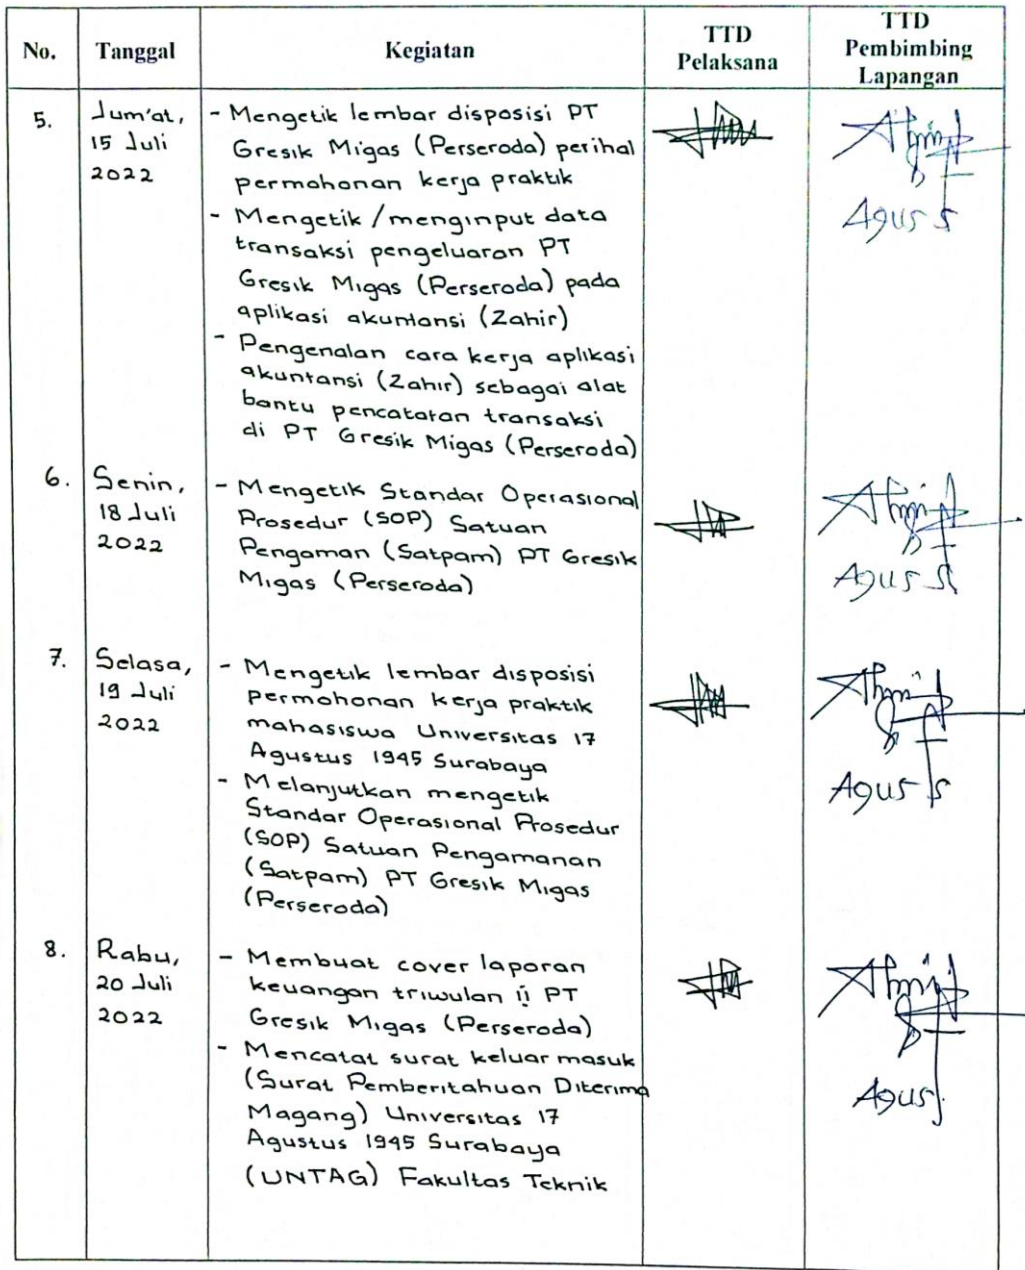 No. Tanggal Kegiatan TTD Pelaksana TTD Pembimbing Lapangan
5. Jum'at, 15 Juli 2022
- Mengetik lembar disposisi PT
Gresik Migas (Perseroda) perihal
permohonan kerja praktik
- Mengetik / menginput data
transaksi pengeluaran PT
Gresik Migas (Perseroda) pada
aplikasi akuntansi (Zahir)
- Pengenalan cara kerja aplikasi
akuntansi (Zahir) sebagai alat
bantu pencatatan transaksi
di PT Gresik Migas (Perseroda)
Agus S
6. Senin, 18 Juli 2022
- Mengetik Standar Operasional
Prosedur (SOP) Satuan
Pengaman (Satpam) PT Gresik
Migas (Perseroda)
Agus S
7. Selasa, 19 Juli 2022
- Mengetik lembar disposisi
permohonan kerja praktik
mahasiswa Universitas 17
Agustus 1945 Surabaya
- Melanjutkan mengetik
Standar Operasional Prosedur
(SOP) Satuan Pengamanan
(Satpam) PT Gresik Migas
(Perseroda)
Agus S
8. Rabu, 20 Juli 2022
- Membuat cover laporan
keuangan triwulan ii PT
Gresik Migas (Perseroda)
- Mencatat surat keluar masuk
(Surat Pemberitahuan Diterima
Magang) Universitas 17
Agustus 1945 Surabaya
(UNTAG) Fakultas Teknik
Agus